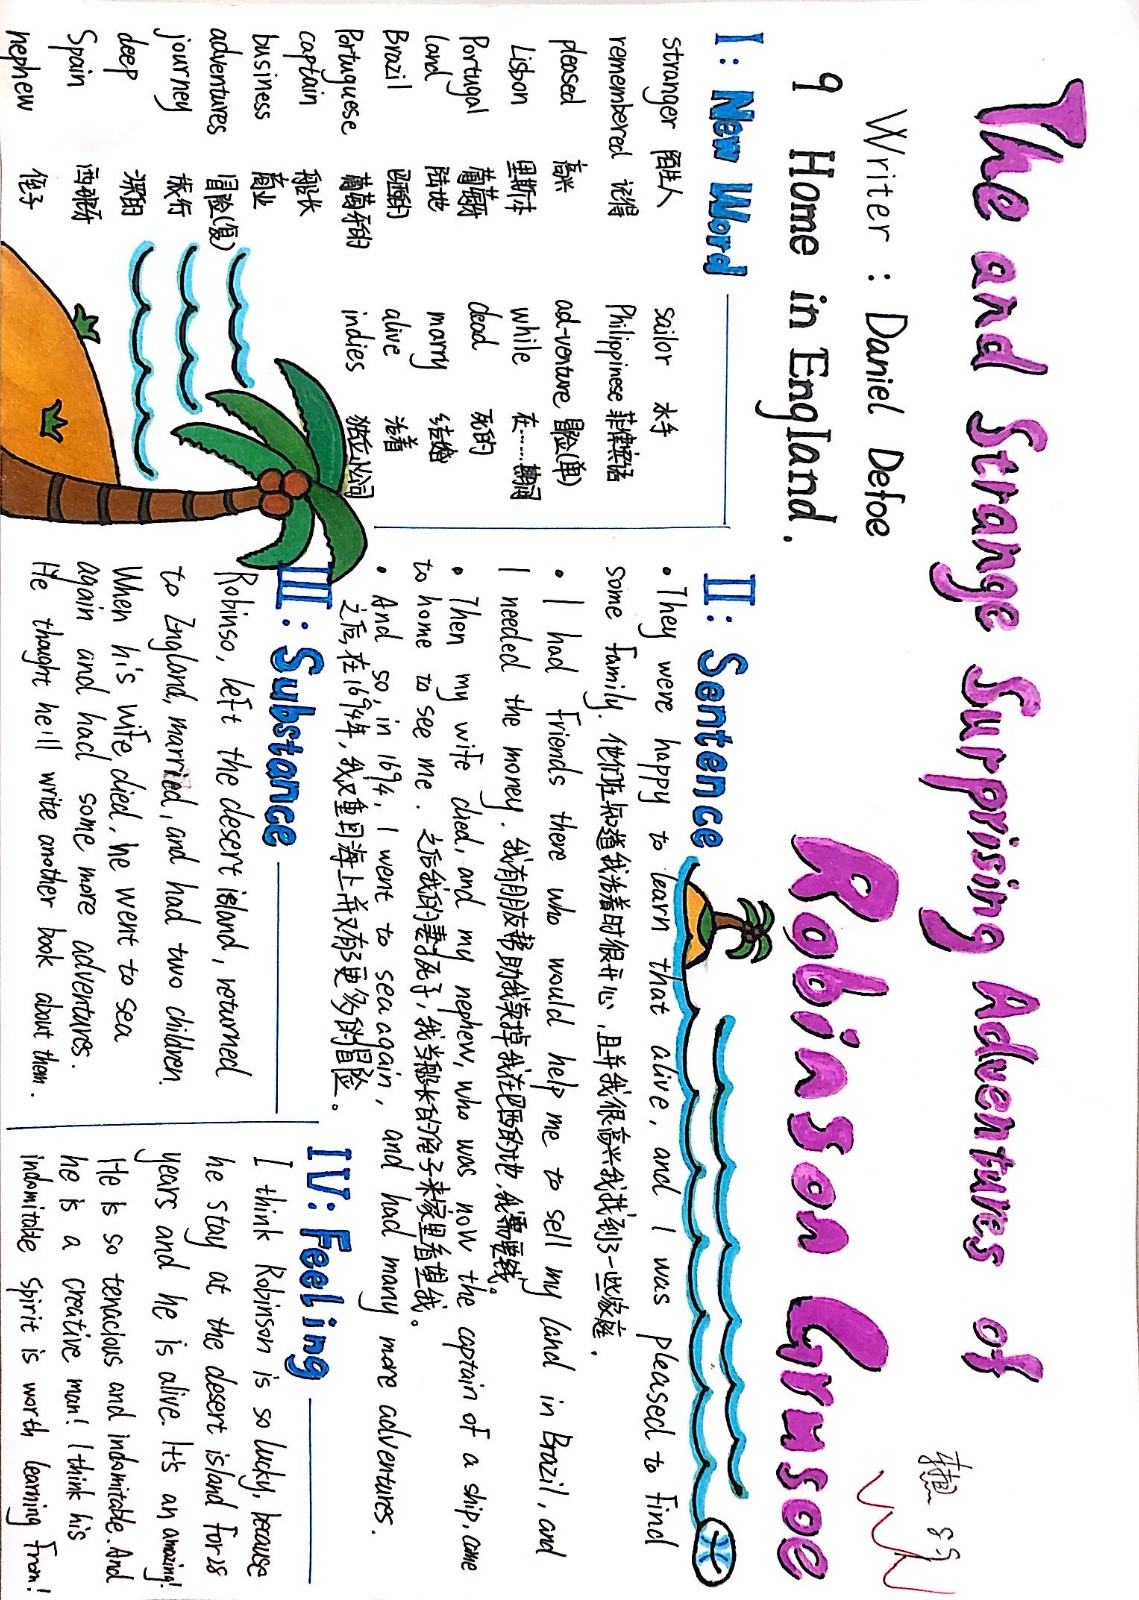 The and Strange Surprising Adventures of
Robinson Crusoe
Writer : Daniel Defoe
9 Home in England.
89
I: New Word
stranger 陌生人
remembered 记得
pleased 高兴
Lisbon 里斯本
Portugal 葡萄牙
land 陆地
Brazil 巴西的
Portuguese 葡萄牙的
captain 船长
business 商业
adventures 冒险(复)
journey 旅行
deep 深的
Spain 西班牙
nephew 侄子
sailor 水手
Philippinese 菲律宾语
ad-venture 冒险(单)
while 在……期间
dead 死的
marry 结婚
alive 活着
indies 独立公司
II: Sentence
• They were happy to learn that alive, and I was pleased to find
some family. 他们在知道我活着时很开心,且并我很高兴我找到了一些家庭.
• I had friends there who would help me to sell my land in Brazil, and
I needed the money. 我有朋友帮助我卖掉我在巴西的地,我需要钱。
• Then my wife died, and my nephew, who was now the captain of a ship, came
to home to see me. 之后我的妻子死了,我当船长的侄子来家里看望我。
• And so, in 1694, I went to sea again, and had many more adventures.
之后,在1694年,我又重回海上并又有了更多的冒险。
III: Substance
Robinso, left the desert island, returned
to England, married, and had two children.
When his wife died, he went to sea
again and had some more adventures.
He thought he'll write another book about them.
IV: Feeling
I think Robinson is so lucky, because
he stay at the desert island for 28
years and he is alive. It's an amazing!
He is so tenacious and indomitable. And
he is a creative man! I think his
indomitable spirit is worth learning from!